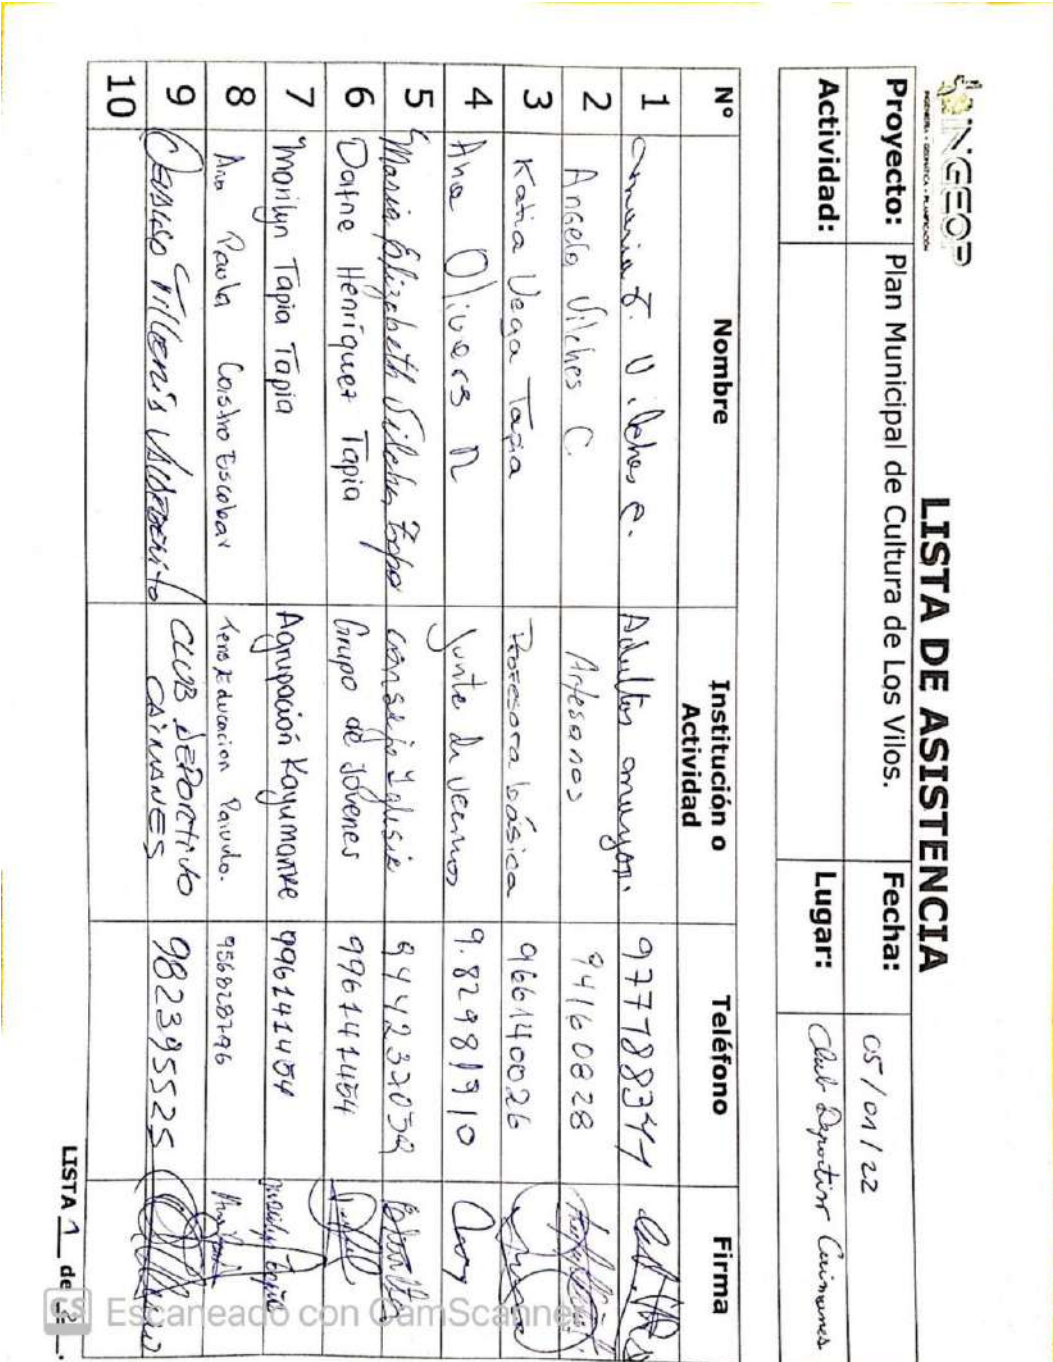 INGEOP
INGENIERÍA + GEOMÁTICA + PLANIFICACIÓN
LISTA DE ASISTENCIA
Proyecto: Plan Municipal de Cultura de Los Vilos. Fecha: 05/01/22
Actividad: Lugar: Club Deportivo Caimanes
N° Nombre Institución o Actividad Teléfono Firma
1 Vilches C. Adultos mayor. 977788347
2 Angela Vilches C. Artesanos 94160828
3 Katia Vega Tapia Profesora básica 966140026
4 Ana Olivares N Junta de vecinos 9.82981910
5 Maria Elizabeth Vilches consejo Iglesia
6 Dafne Henríquez Tapia Grupo de Jóvenes 996141454
7 Marilyn Tapia Tapia Agrupación Kayumanke 996141454 Marilyn Tapia
8 Ana Paula Castro Escobar Tens Educacion Parvulo. 956828796
9 CLUB DEPORTIVO CAIMANES 982395525
10
LISTA 1 de 2.
CS Escaneado con CamScanner